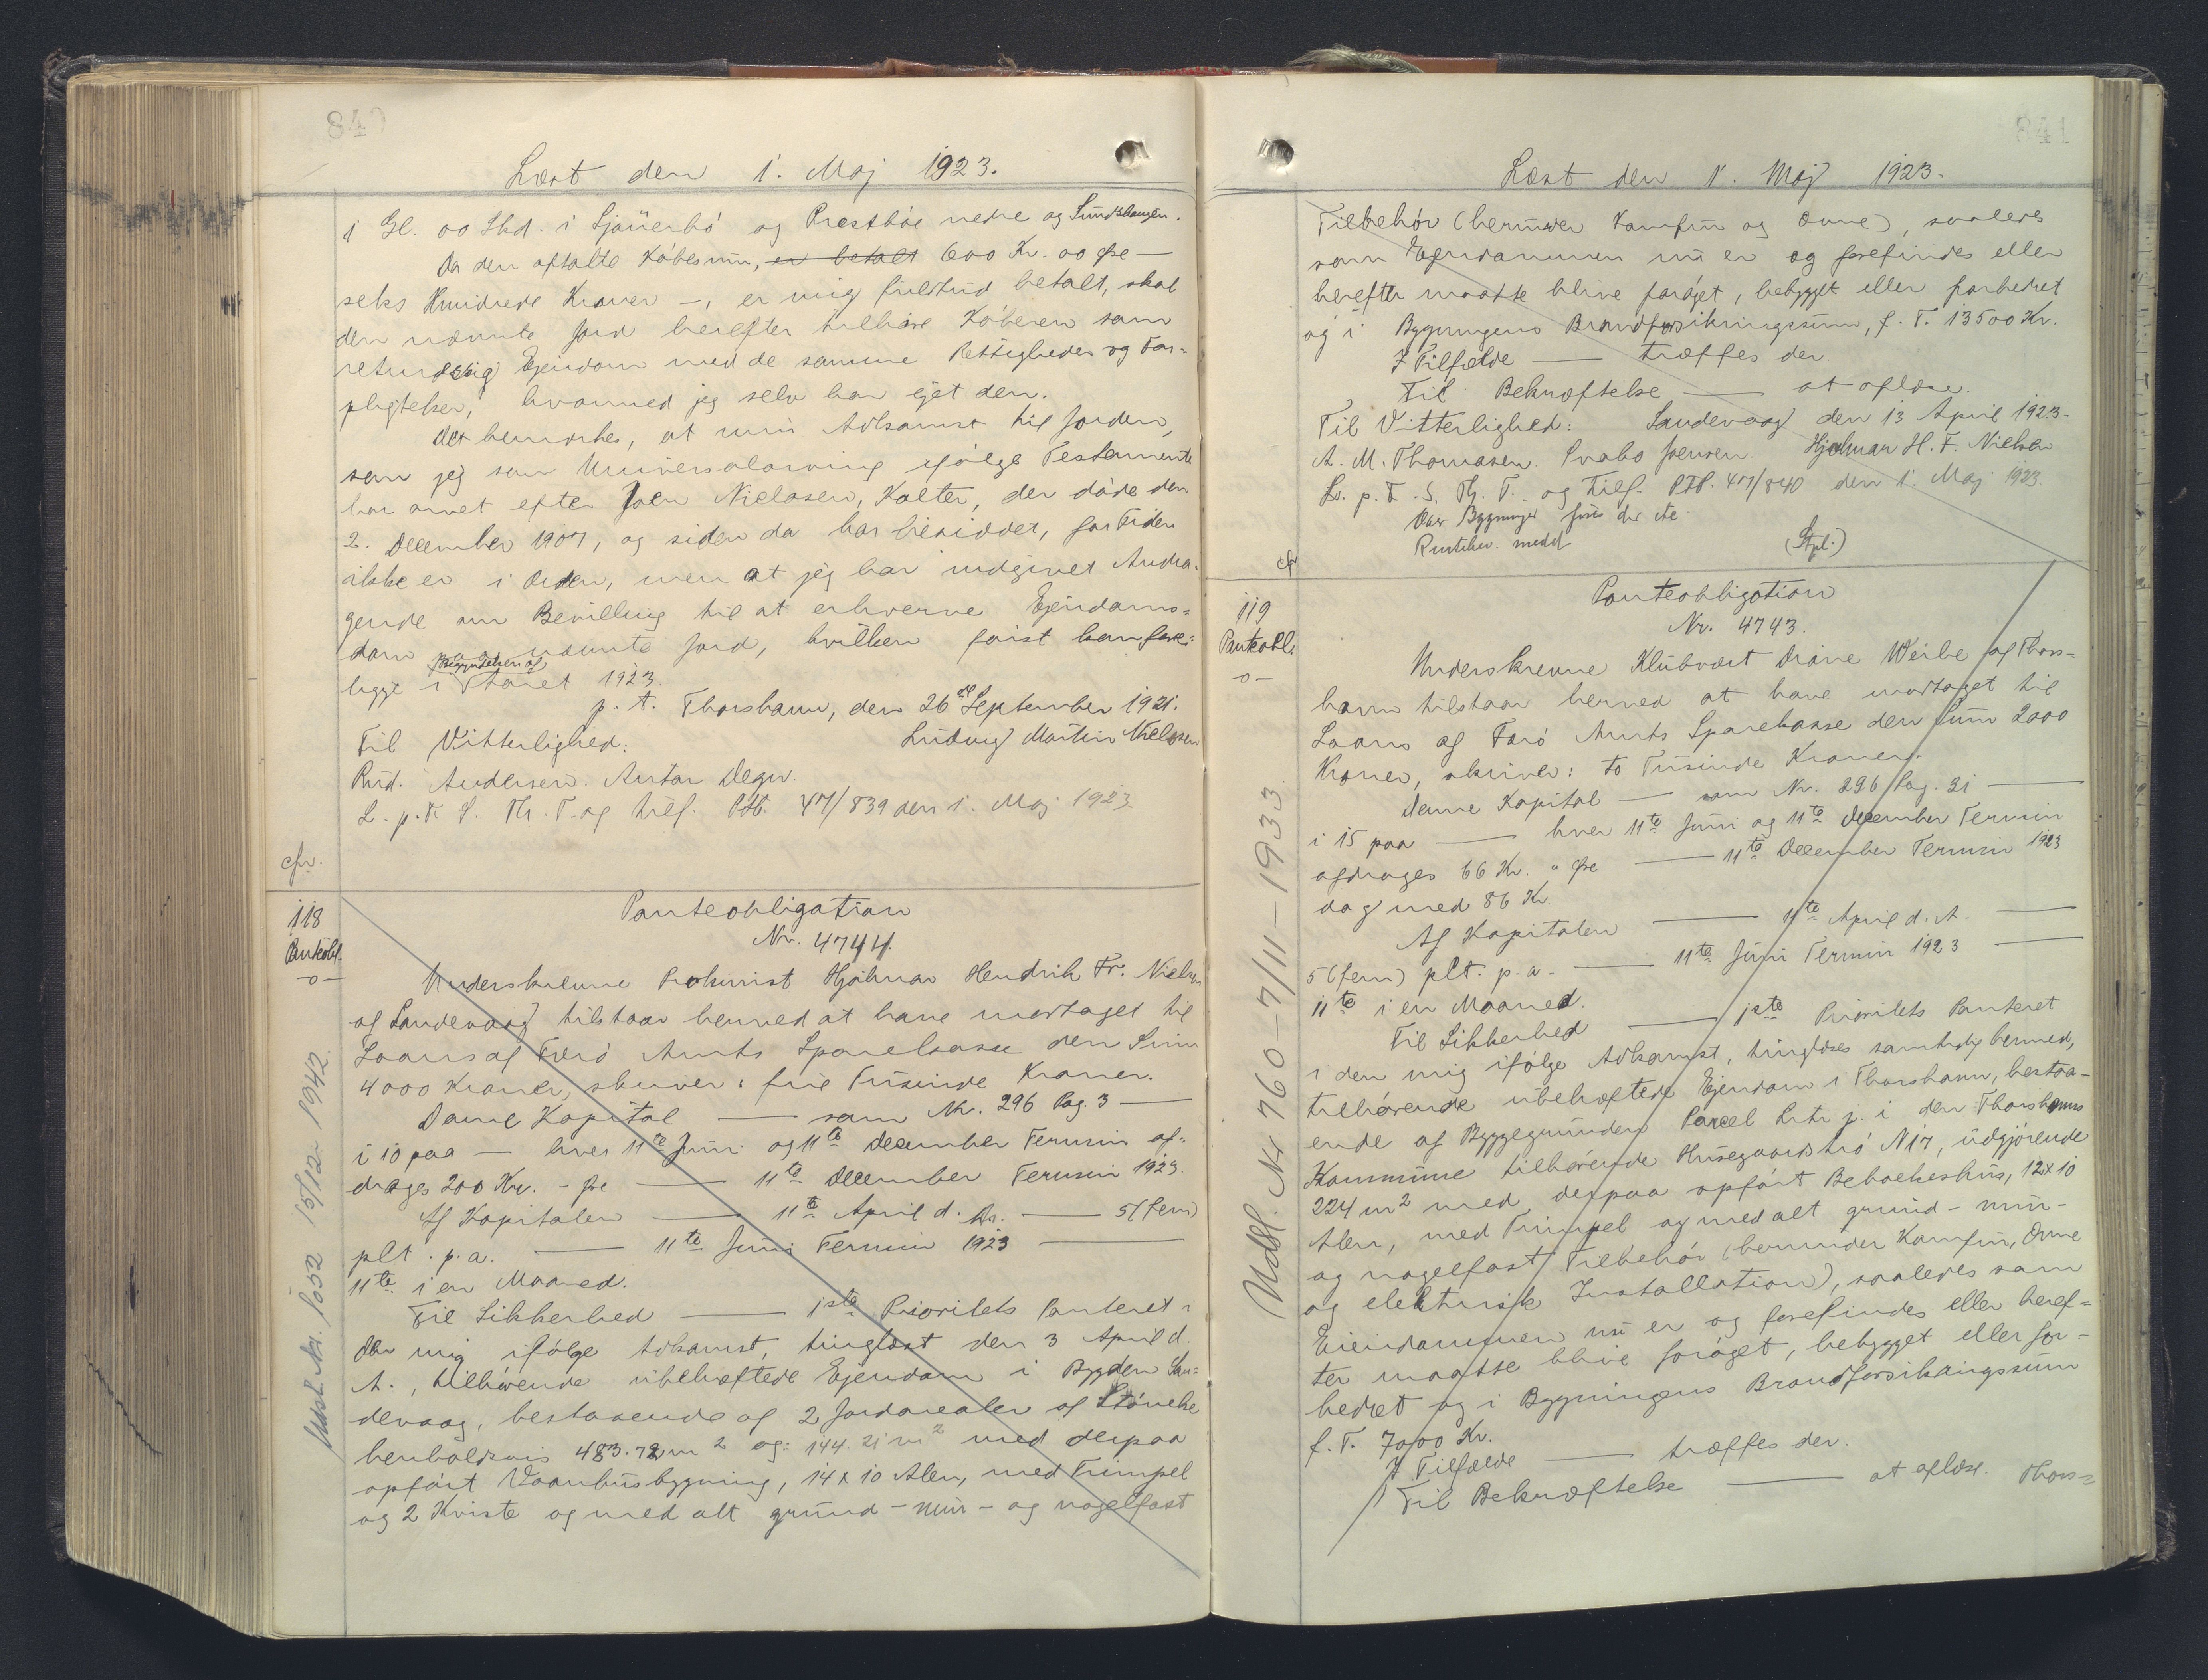 840
Læst den 1. Maj 1923.
1 Gl. 00 Skd. i Sjóuerbö og Prestböe nedre og Sundshaugen.
Da den aftalte Købesum, er betalt 600 Kr. 00 Øre —
seks Hundrede Kroner —, er mig fuldtud betalt, skal
den nævnte Jord herefter tilhøre Køberen som
retmæssig Ejendom med de samme Rettigheder og For-
pligtelser, hvormed jeg selv har ejet den.
Det bemærkes, at min Adkomst til Jorden,
som jeg som Universalarving ifølge Testamente
har arvet efter Joen Nielasen, Kalter, der døde den
2. December 1907, og siden da har besiddet, for Tiden
ikke er i Orden, men at jeg har indgivet Andra-
gende om Bevilling til at erhverve Ejendoms-
dom paa nævnte Jord, hvilken først kan fore-
ligge i Begyndelsen af Aaret 1923.
p. t. Thorshavn, den 26de September 1921.
Til Vitterlighed: Ludvig Martin Nielsen
Rud. Andersen. Anton Degn.
L. p. F. S. Th. T. og tilf. Ptb. 47/839 den 1. Maj 1923.
cfr.
118
Panteobl.
-o-
Panteobligation
Nr. 4744.
Underskrevne Prokurist Hjalmar Hendrik Fr. Nielsen
af Sandevaag tilstaar herved at have modtaget til
Laans af Færö Amts Sparekasse den Sum
4000 Kroner, skriver: fire Tusinde Kroner.
Denne Kapital — som Nr. 296 Pag. 3 —
i 10 paa — hver 11te Juni og 11te December Termin af-
drages 200 Kr. - Øre — 11te December Termin 1923.
Af Kapitalen — 11te April d. As. — 5 (fem)
plt. p. a. — 11te Juni Termin 1923 —
11te i en Maaned.
Til Sikkerhed — 1ste Prioritets Panteret i
den mig ifølge Adkomst, tinglæst den 3 April d.
A., tilhørende ubehæftede Ejendom i Bygden San-
devaag, bestaaende af 2 Jordarealer af Størrelse
henholdsvis 483.72 m2 og 144.21 m2 med derpaa
opført Vaanhusbygning, 14 x 10 Alen, med Trimpel
og 2 Kviste og med alt grund- mur- og nagelfast
Udsl. Nr. 1052 15/12 1942.
841
Læst den 1. Maj 1923.
Tilbehør (herunder Komfur og Ovne), saaledes
som Ejendommen nu er og forefindes eller
herefter maatte blive forøget, bebygget eller forbedret
og i Bygningens Brandforsikringssum, f. T. 13500 Kr.
I Tilfælde — træffes der.
Til Bekræftelse — at aflæse.
Til Vitterlighed: Sandevaag den 13 April 1923.
A. M. Thomasen. Svabo Joensen. Hjalmar H. F. Nielsen
Ls. p. F. S. Th. T. og tilf. Ptb. 47/840 den 1. Maj 1923.
(Stpl.)
cfr
119
Panteobl.
-o-
Panteobligation
Nr. 4743.
Underskrevne Klubvært Diane Weihe af Thors-
havn tilstaar herved at have modtaget til
Laans af Færö Amts Sparekasse den Sum 2000
Kroner, skriver: to Tusinde Kroner.
Denne Kapital — som Nr. 296 Pag. 31 —
i 15 paa — hver 11te Juni og 11te December Termin
afdrages 66 Kr. " Øre — 11te December Termin 1923
dog med 86 Kr.
Af Kapitalen — 11te April d. A. —
5 (fem) plt. p. a. — 11te Juni Termin 1923 —
11te i en Maaned.
Til Sikkerhed — 1ste Prioritets Panteret
i den mig ifølge Adkomst, tinglæses samtidig herved,
tilhørende ubehæftede Ejendom i Thorshavn, bestaa-
ende af Byggegrunden Parcel Litr. j. i den Thorshavns
Kommune tilhørende Husegaardströ N 17, udgjörende
224 m2 med derpaa opført Beboelseshus, 12 x 10
Alen, med Trimpel og med alt grund- mur-
og nagelfast Tilbehør (herunder Komfur, Ovne
og elektrisk Installation), saaledes som
Eiendommen nu er og forefindes eller heref-
ter maatte blive forøget, bebygget eller for-
bedret og i Bygningens Brandforsikringssum
f. T. 7000 Kr.
I Tilfælde — træffes der.
Til Bekræftelse — at aflæse. Thors-
Udsl. Nr. 760 - 7/11 - 1933